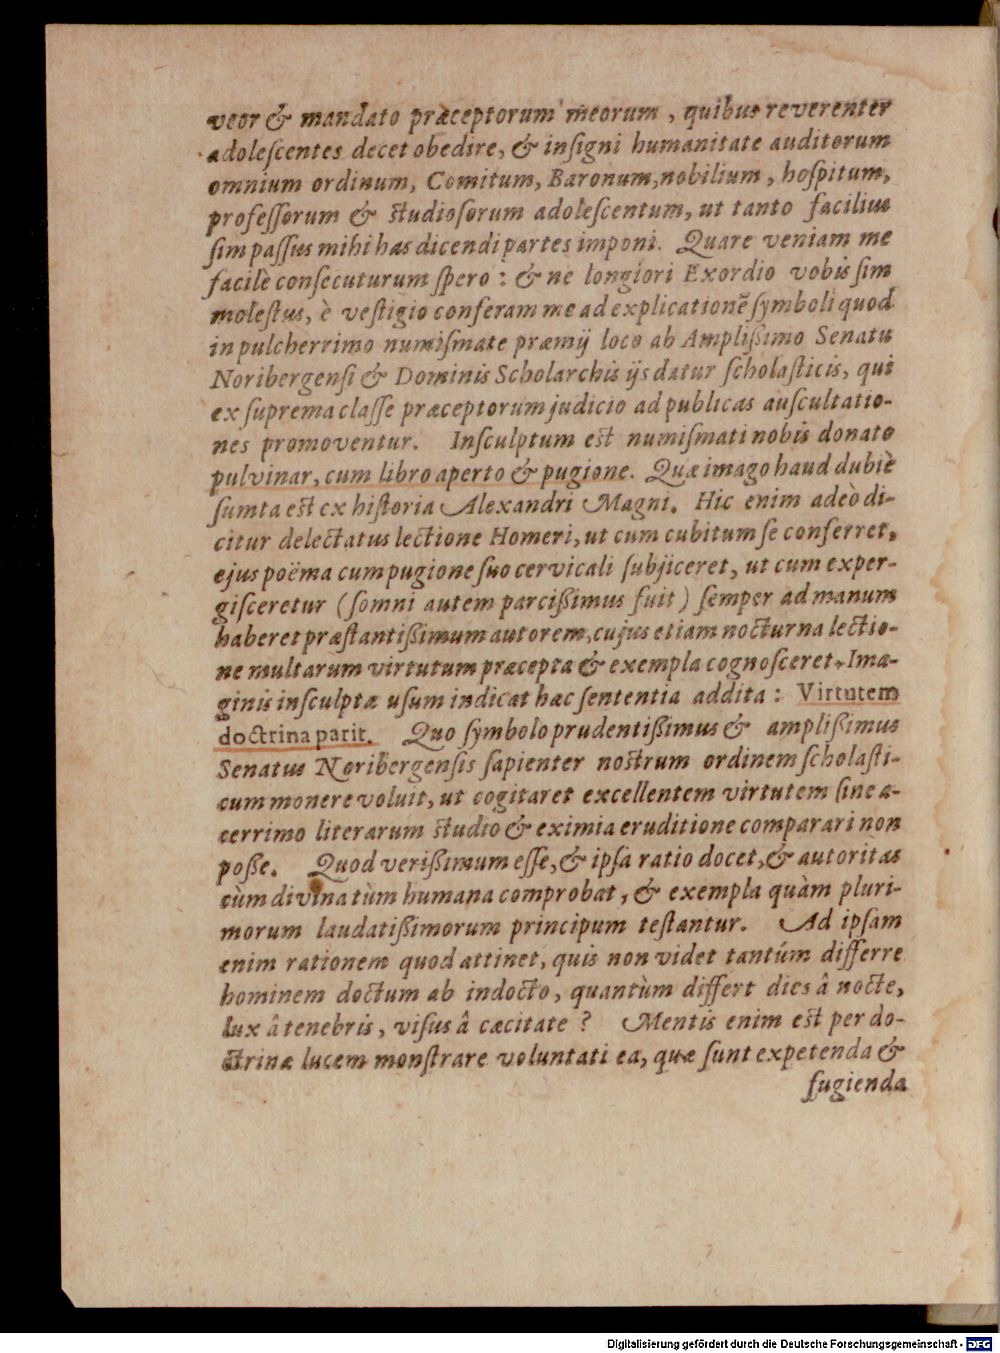 veor & mandato præceptorum meorum, quibus reverenter
adoleſcentes decet obedire, & inſigni humanitate auditorum
omnium ordinum, Comitum, Baronum, nobilium, hoſpitum,
profeſſorum & ſtudioſorum adoleſcentum, ut tanto facilius
ſim paſſus mihi has dicendi partes imponi. Quare veniam me
facilè conſecuturum ſpero: & ne longiori Exordio vobis ſim
moleſtus, è veſtigio conferam me ad explicationẽ ſymboli quod
in pulcherrimo numiſmate præmij loco ab Ampliſſimo Senatu
Noribergenſi & Dominis Scholarchis ijs datur ſcholaſticis, qui
ex ſuprema claſſe præceptorum judicio ad publicas auſcultatio-
nes promoventur. Inſculptum eſt numiſmati nobis donato
pulvinar, cum libro aperto & pugione. Quæ imago haud dubiè
ſumta eſt ex hiſtoria Alexandri Magni. Hic enim adeò di-
citur delectatus lectione Homeri, ut cum cubitum ſe conferret,
ejus poëma cum pugione ſuo cervicali ſubjiceret, ut cum exper-
giſceretur (ſomni autem parciſſimus fuit) ſemper ad manum
haberet præſtantiſſimum autorem, cujus etiam nocturna lectio-
ne multarum virtutum præcepta & exempla cognoſceret. Ima-
ginis inſculptæ uſum indicat hæc ſententia addita: Virtutem
doctrina parit. Quo ſymbolo prudentiſſimus & ampliſſimus
Senatus Noribergenſis ſapienter noſtrum ordinem ſcholaſti-
cum monere voluit, ut cogitaret excellentem virtutem ſine a-
cerrimo literarum ſtudio & eximia eruditione comparari non
poſſe. Quod veriſſimum eſſe, & ipſa ratio docet, & autoritas
cùm divina tùm humana comprobat, & exempla quàm pluri-
morum laudatiſſimorum principum teſtantur. Ad ipſam
enim rationem quod attinet, quis non videt tantúm differre
hominem doctum ab indocto, quantùm differt dies â nocte,
lux â tenebris, viſus â cæcitate? Mentis enim eſt per do-
ctrinæ lucem monſtrare voluntati ea, quæ ſunt expetenda &
fugienda
Digitalisierung gefördert durch die Deutsche Forschungsgemeinschaft - DFG